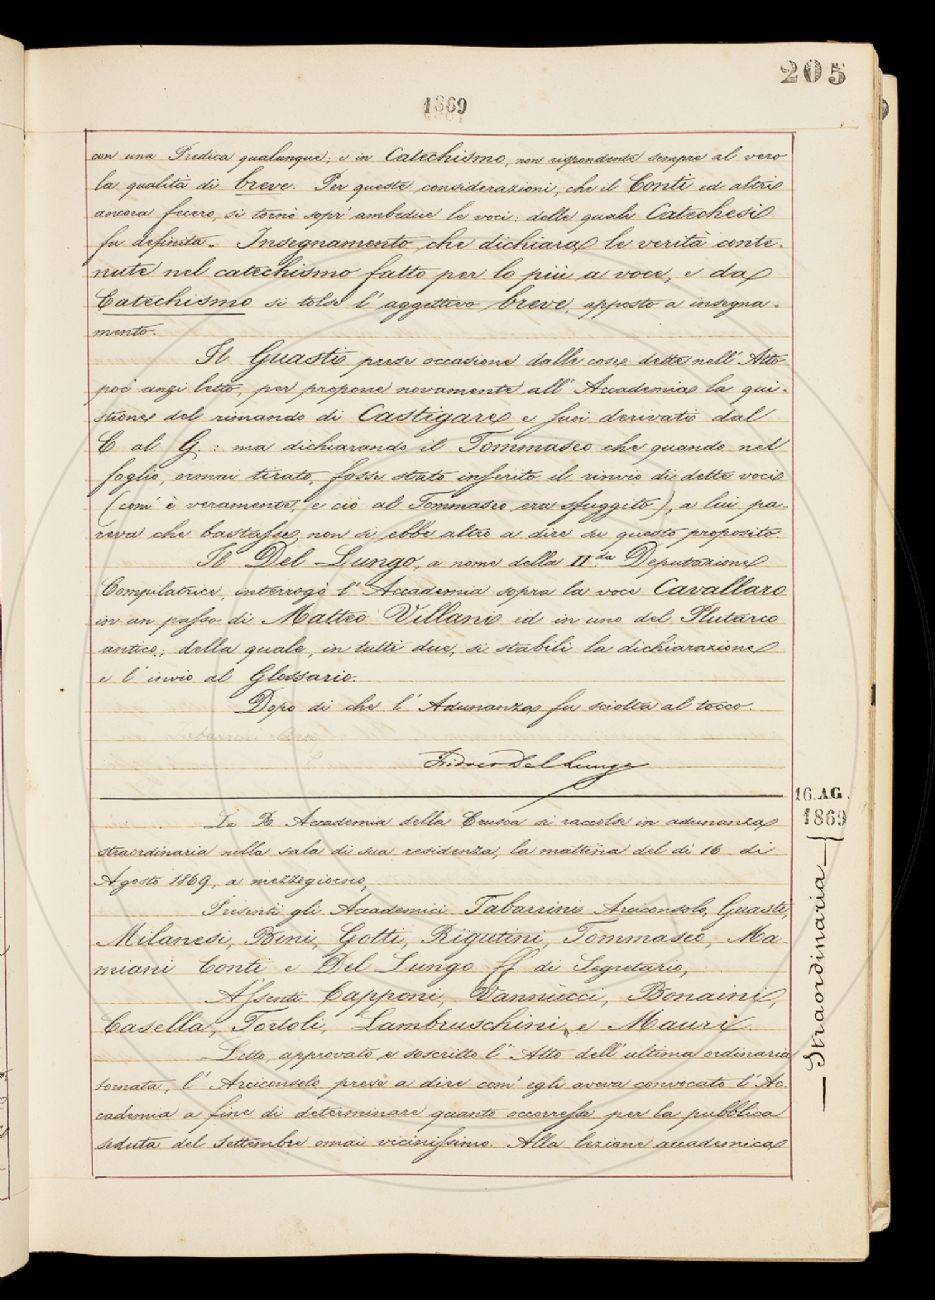 205
1869
con una Predica qualunque; e in Catechismo, non rispondente sempre al vero
la qualità di breve. Per queste considerazioni, che il Conti ed altri
ancora fecero, si tornò sopr' ambedue le voci: delle quali Catechesi
fu definita. Insegnamento che dichiara le verità conte-
nute nel catechismo fatto per lo più a voce, e da
Catechismo si tolse l' aggettivo breve, apposto a insegna-
mento.
Il Guasti prese occasione dalle cose dette nell' Atto
poc' anzi letto, per proporre novamente all' Accademia la qui-
stione del rimando di Castigare e suoi derivati dal
C al G: ma dichiarando il Tommaseo che quando nel
foglio, oramai tirato, fosse stato inserito il rinvio di dette voci
(com' è veramente, e ciò al Tommaseo era sfuggito), a lui pa-
reva che bastasse, non si ebbe altro a dire su questo proposito.
Il Del Lungo, a nome della IIda Deputazione
Compilatrice, interrogò l' Accademia sopra la voce Cavallaro
in un passo di Matteo Villani ed in uno del Plutarco
antico; della quale, in tutti due, si stabilì la dichiarazione
e l' invio al Glossario.
Dopo di che l' Adunanza fu sciolta al tocco.
Isidoro Del Lungo
16. AG.
1869
Straordinaria
La R. Accademia della Crusca si raccolse in adunanza
straordinaria nella sala di sua residenza, la mattina del dì 16 di
Agosto 1869, a mezzogiorno,
Presenti gli Accademici Tabarrini Arciconsolo, Guasti,
Milanesi, Bini, Gotti, Rigutini, Tommaseo, Ma
miani Conti e Del Lungo ff di Segretario,
Assenti Capponi, Vannucci, Bonaini,
Casella, Tortoli, Lambruschini, e Mauri.
Letto, approvato e soscritto l' Atto dell' ultima ordinaria
tornata, l' Arciconsolo prese a dire com' egli aveva convocato l' Ac-
cademia a fine di determinare quanto occorresse per la pubblica
seduta del Settembre omai vicinissimo. Alla lezione accademica